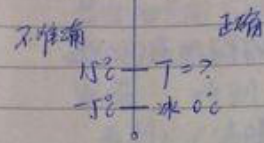 不准确 正确
15℃ — T=?
-5℃ — 冰 0℃
0